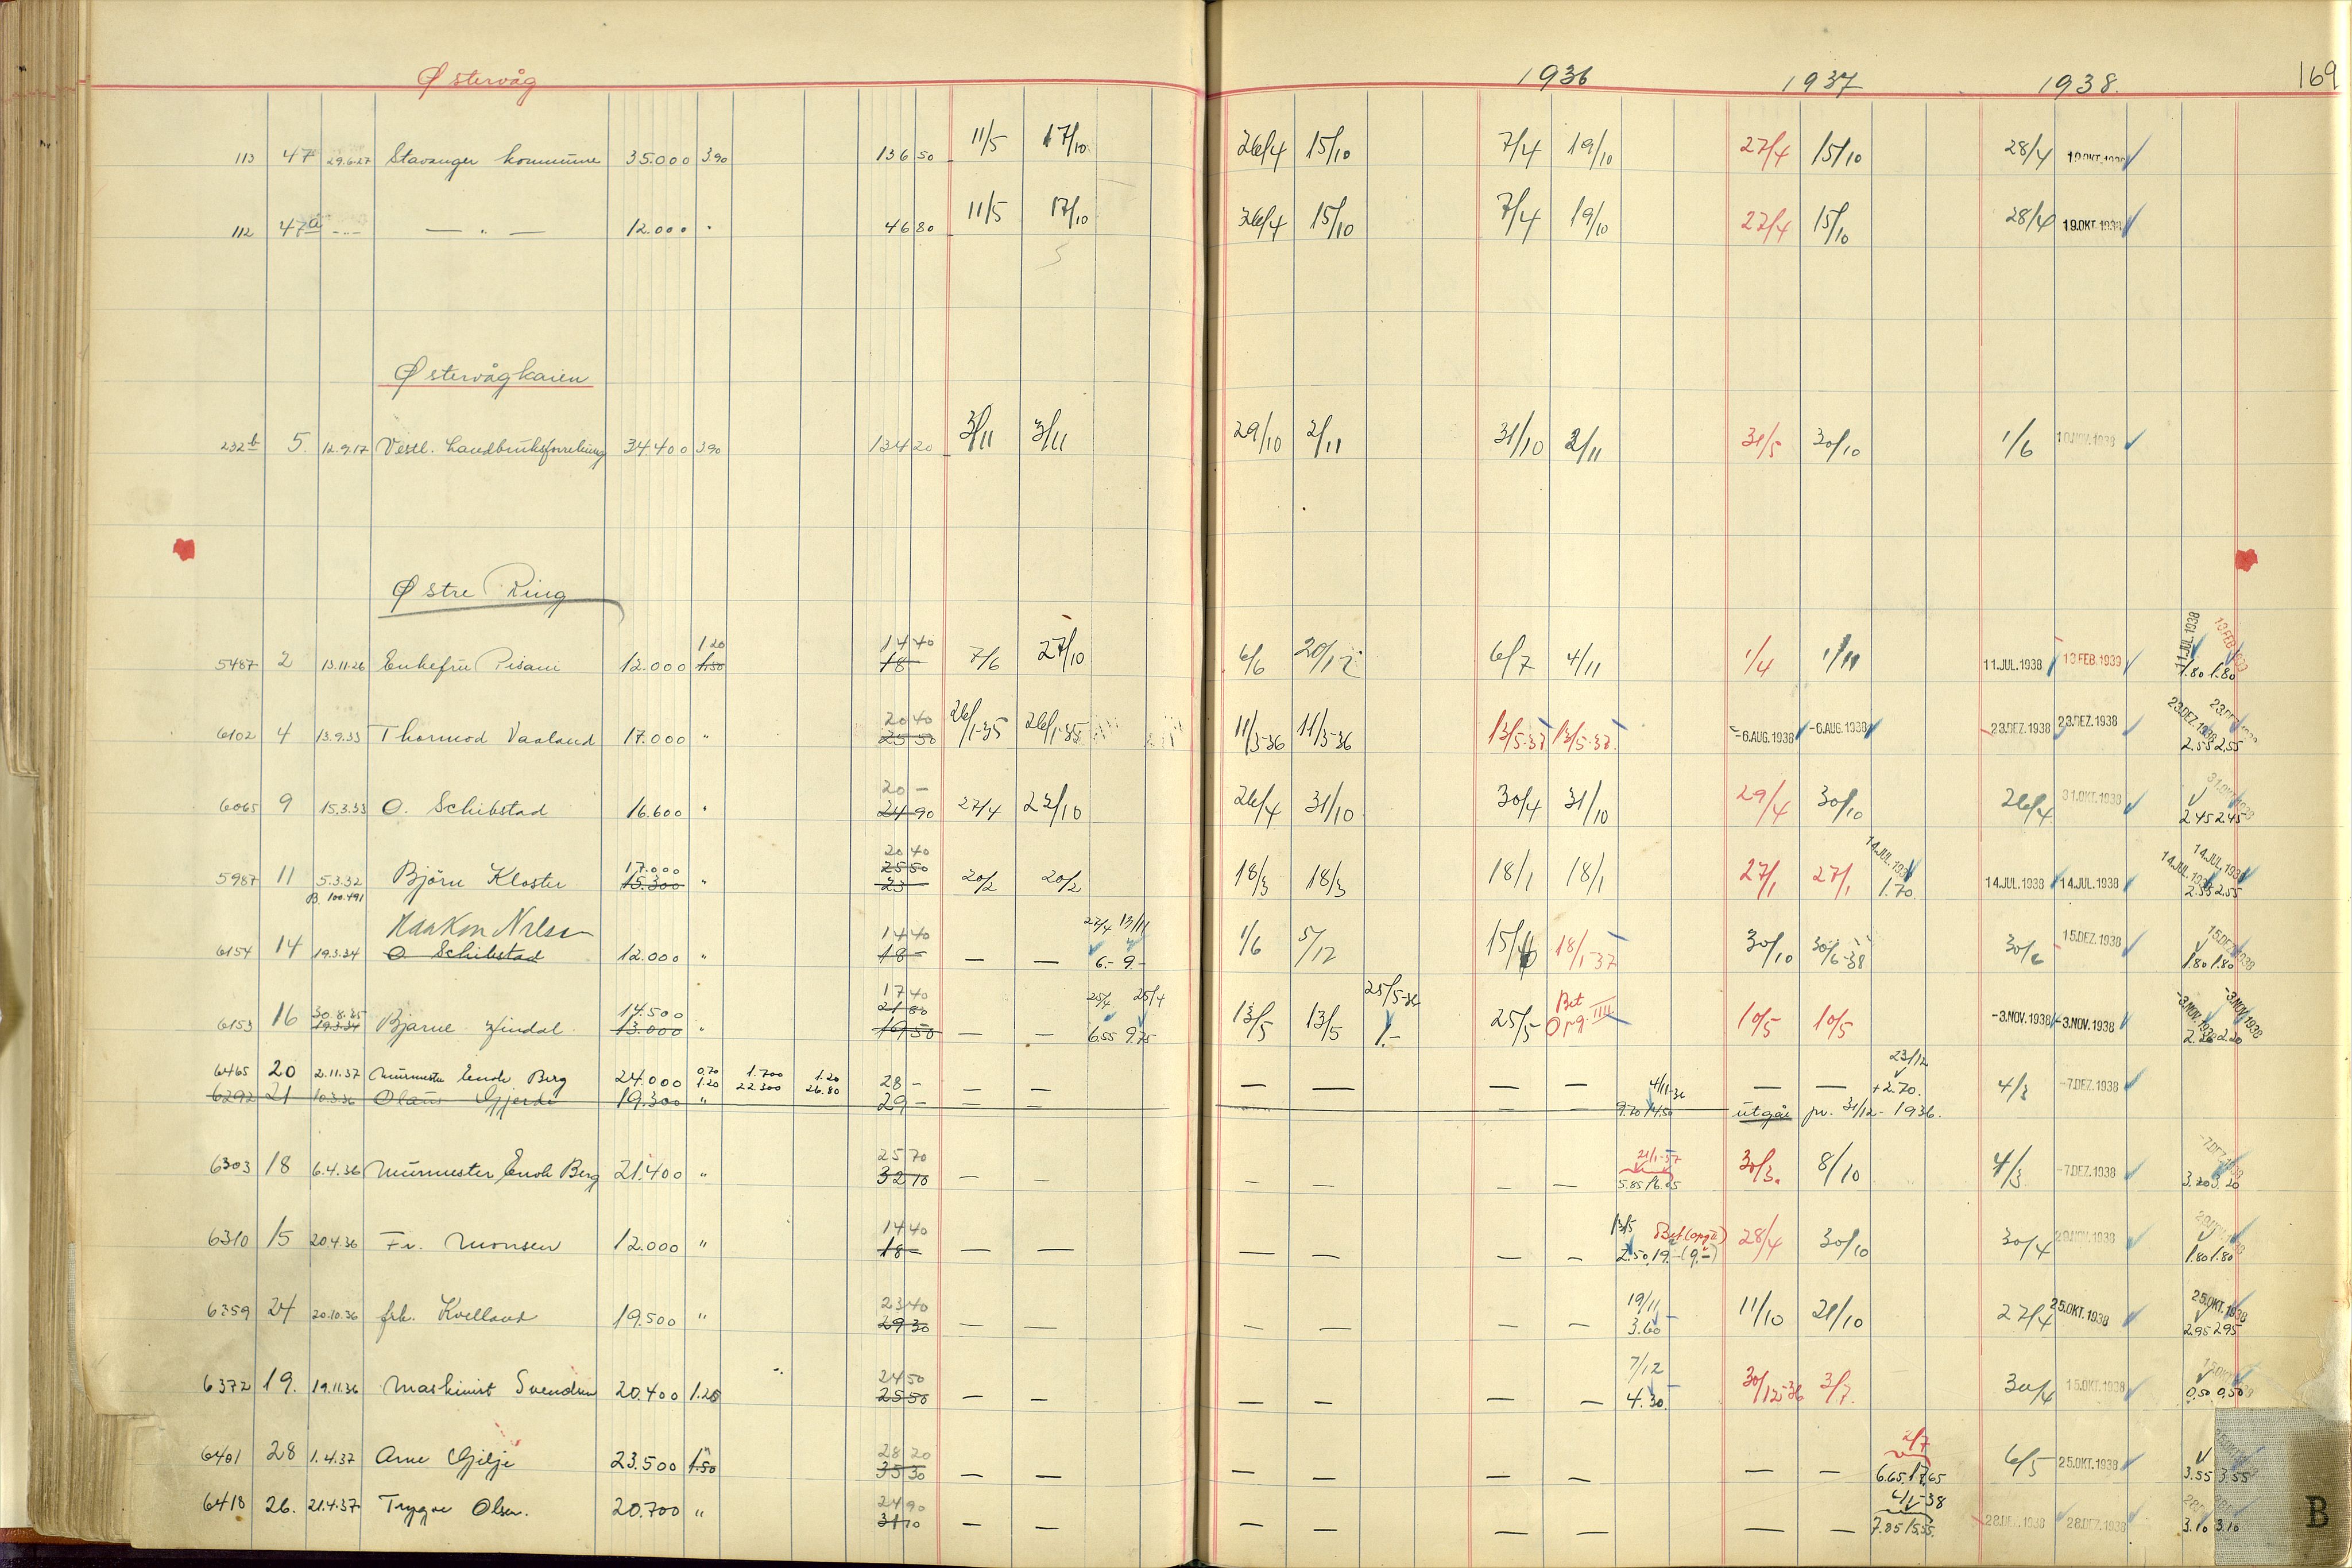 Østervåg 1936 1937 1938. 169
113 47 29.6.27 Stavanger kommune 35.000 3.90 136 50 11/5 17/10 26/4 15/10 7/4 19/10 27/4 15/10 28/4
112 47a — " — 12.000 " 46 80 11/5 17/10 26/4 15/10 7/4 19/10 27/4 15/10 28/4 19.OKT.1938
Østervågkaien
232b 5. 12.9.17 Vestl. Landbruksforretning 34.400 3.90 134 20 3/11 3/11 29/10 2/11 31/10 2/11 31/5 30/10 1/6 10.NOV.1938
Østre Ring
1.20 14 40 11.JUL.1938 10 FEB. 1939
5487 2 13.11.26 Enkefru Pisani 12.000 1.50 18 – 7/6 27/10 6/6 20/12 6/7 4/11 1/4 1/11 11.JUL.1938 10 FEB. 1939 1.80 1.80
20 40 23.DEZ.1938
6102 4 13.9.33 Thormod Vaaland 17.000 " 25 50 26/1-35 26/1-35 11/3-36 11/3-36 13/5-38 13/5-38 -6.AUG.1938 -6.AUG.1938 23.DEZ.1938 23.DEZ.1938 2.55 2.55
20 –
6065 9 15.3.33 O. Schibstad 16.600 " 24 90 27/4 23/10 26/4 31/10 30/4 31/10 29/4 30/10 26/4 31.OKT.1938 2.45 2.45
20 40
17.000 25 50 14.JUL.1938 14.JUL.1938 14.JUL.1938
5987 11 5.3.32 Björn Kloster 15.300 " 23 – 20/2 20/2 18/3 18/3 18/1 18/1 27/1 27/1 1.70 14.JUL.1938 14.JUL.1938 2.55 2.55
B. 100.491
Haakon Nilsen 14 40 27/4 13/11
6154 14 19.3.34 O Schibstad 12.000 " 18 – — — 6.- 9.- 1/6 5/12 18/1-37 30/10 30/6-38 30/6 15.DEZ.1938 1.80 1.80
17 40
30.8.35 14.500 21 80 25/4 25/4 25/5-36 Bet -3.NOV.1938 -3.NOV.1938
6153 16 19.3.34 Bjarne 13.000 " 19 50 — — 6.55 9.75 13/5 13/5 1.- 25/5 Opg. IIII 10/5 10/5 -3.NOV.1938 -3.NOV.1938 2.20 2.20
23/12
6465 20 2.11.37 Murmester Enok Berg 24.000 0.70 1.20 1.700 22.300 1.20 26.80 28 – — — — — — — 4/11-36 — — +2.70. 4/3 -7.DEZ.1938
6292 21 10.3.36 Olaus Gjerde 19.300 " 29 – — — — — 9.70 14.50 utgår pr. 31/12 - 1936.
25 70 21/1-37
6303 18 6.4.36 Murmester Enok Berg 21.400 " 32 10 — — — — — — 5.85 16.05 30/3. 8/10 4/3 -7.DEZ.1938 3.20 3.20
14 40 13/5 Bet (opg II)
6310 15 20.4.36 Fr. Monsen 12.000 " 18 – — — — — — — 2.50 19.- (9.-) 28/4 30/10 30/4 1.80 1.80
23 40 19/11 25.OKT.1938
6359 24 20.10.36 frk. Kvelland 19.500 " 29 30 — — — — — — 3.60 11/10 21/10 27/4 25.OKT.1938 2.95 2.95
24 50 7/12
6372 19. 19.11.36 Maskinist Svendsen 20.400 1.20 25 50 — — — — — — 4.30. 30/12-36 3/7. 30/4 15.OKT.1938 0,50 0,50
28 20 2/7
6401 28 1.4.37 Arne Gilje 23.500 1.50 35 30 — — — — — — — — 6.65 17.65 6/5 25.OKT.1938 3.55 3.55
24 90 4/1-38
6418 26. 21.4.37 Trygve Olsen. 20.700 " 31 10 — — — — — — — — 7.85 15.55. 28.DEZ.1938 28.DEZ.1938 3.10 3.10
B